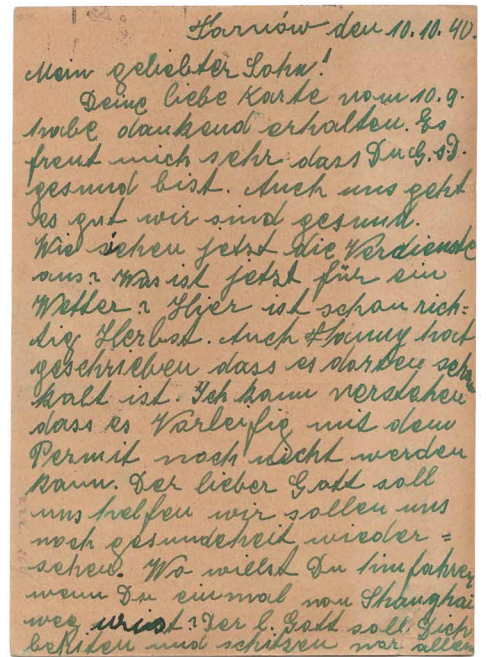 Tarnów den 10.10.40.
Mein geliebter Sohn!
Deine liebe Karte vom 10.9.
habe dankend erhalten. Es
freut mich sehr dass Du G.s.D.
gesund bist. Auch uns geht
es gut wir sind gesund.
Wie sehen jetzt die Verdienste
aus? Was ist jetzt für ein
Wetter? Hier ist schon rich=
tig Herbst. Auch Hanny hat
geschrieben dass es dorten sehr
kalt ist. Ich kann verstehen
dass es Varleifig mit dem
Permit noch nicht werden
kann. Der lieber Gott soll
uns helfen wir sollen uns
noch gesundcheit wieder=
sehen. Wo willst Du hinfahren
wenn Du einmal von Shanghai
weg wirst? Der l. Gott soll Dich
behiten und schitzen vor allen